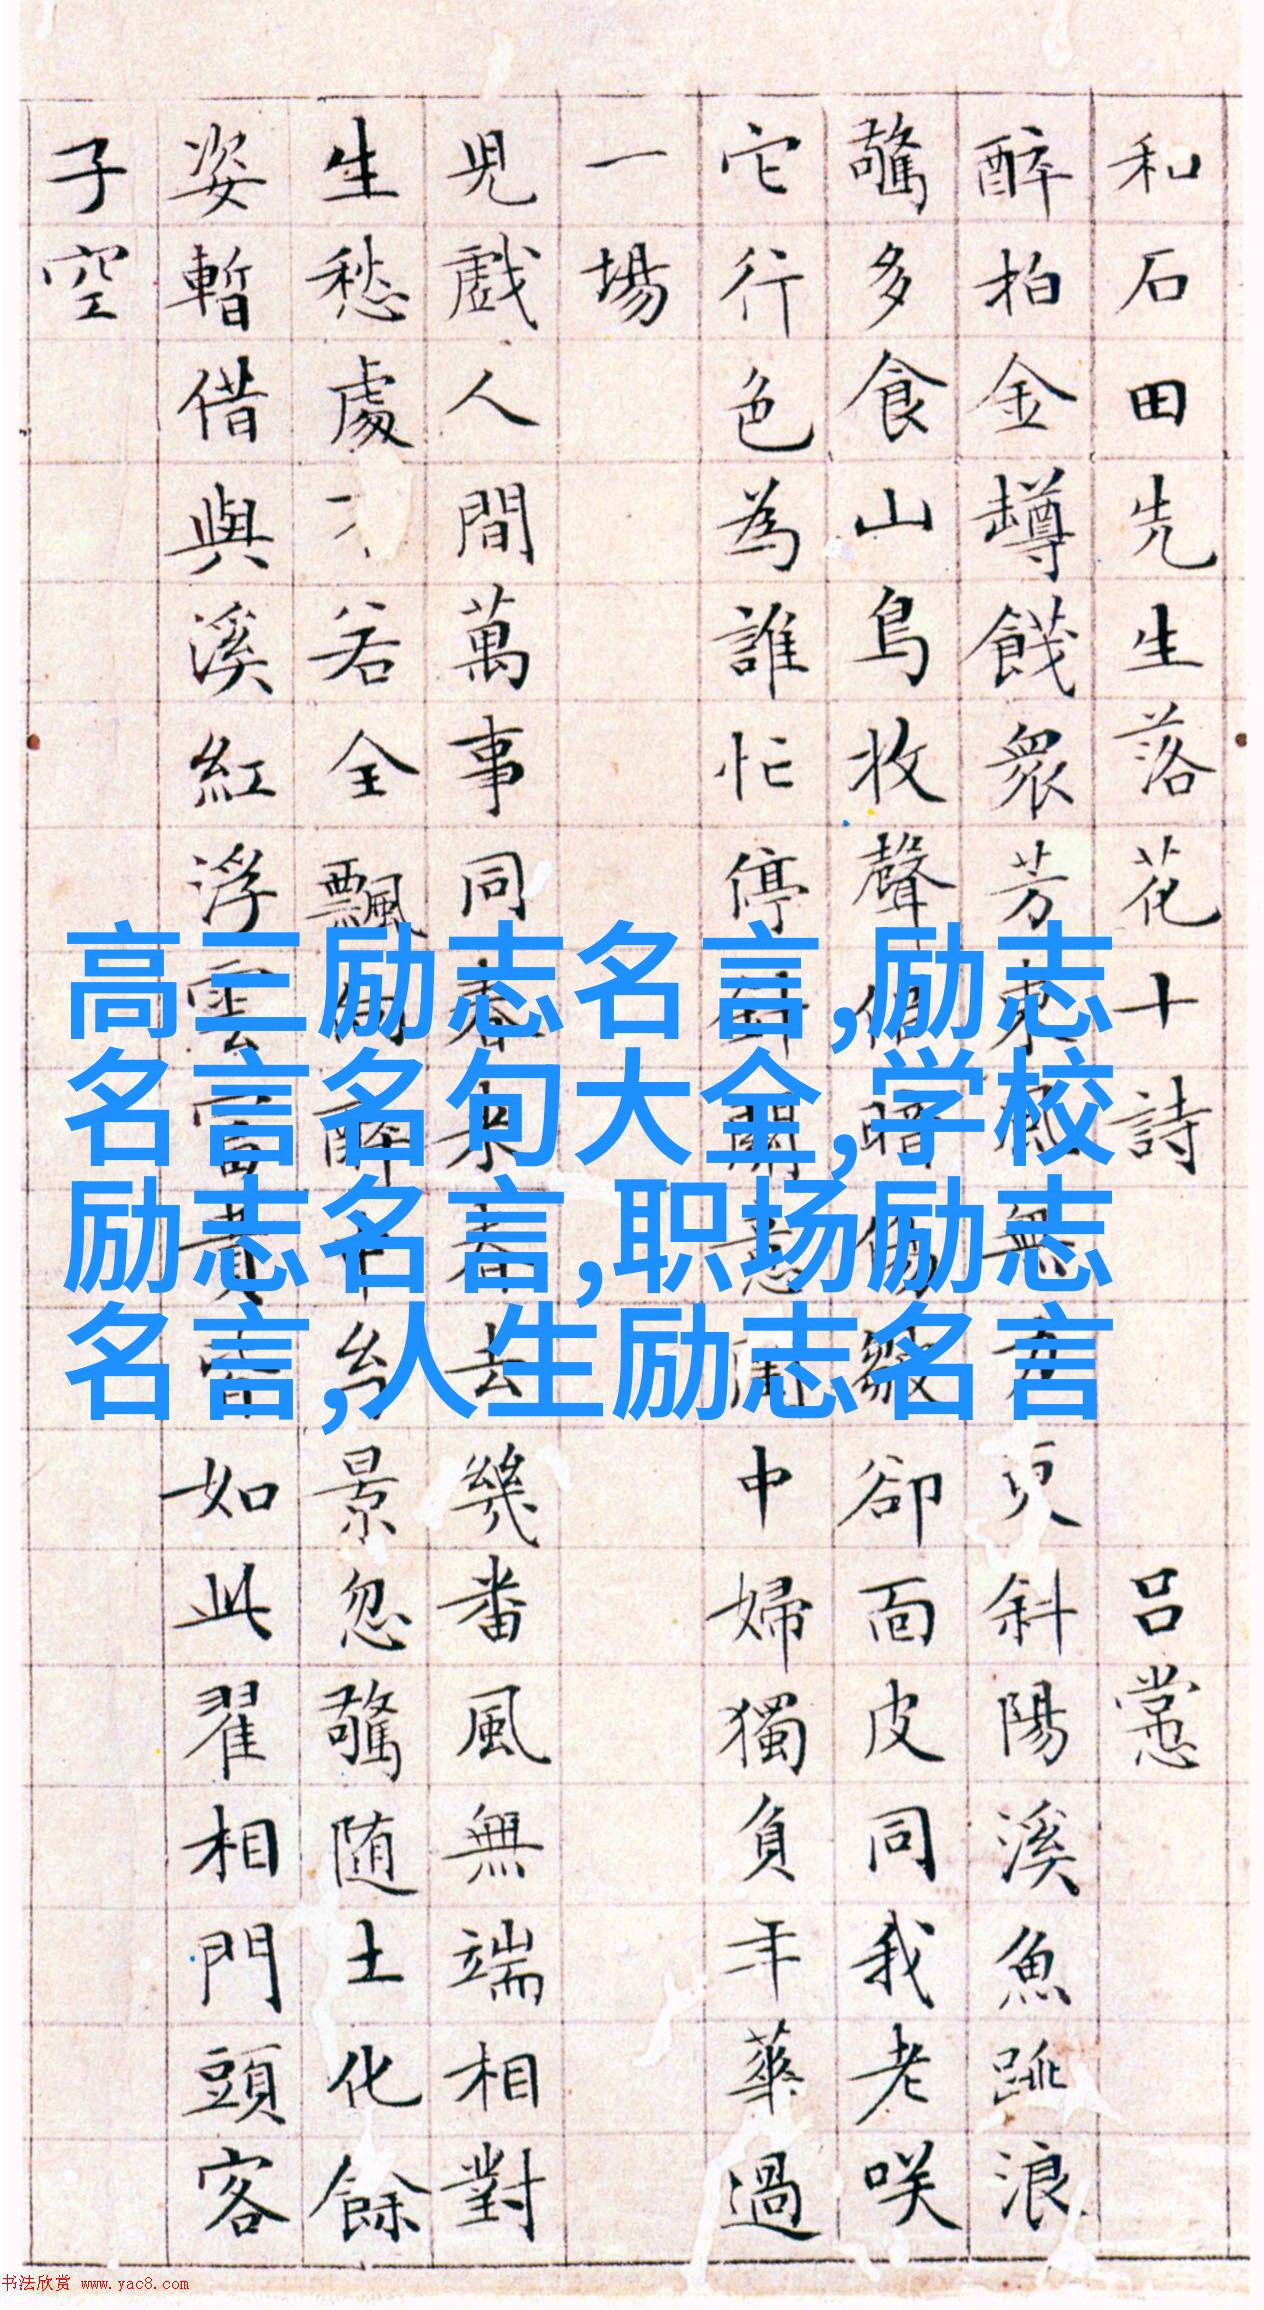 和石田先生落花十詩 呂
醉拍金罇餞衆芳東風無力更斜陽溪魚跳浪
驚多食山鳥收聲但暗傷皺卻面皮同我老咲
它行色為誰忙停中婦獨負年華過
一場
兒戲人間萬事同春來春去幾番風無端相對
生愁處不若全飄景忽驚随土化餘
姿暫借與溪紅浮雲富貴皆如此翟相門頭客
子空
高三励志名言,励志
名言名句大全,学校
励志名言,职场励志
名言,人生励志名言
书法欣赏 www.yac8.com